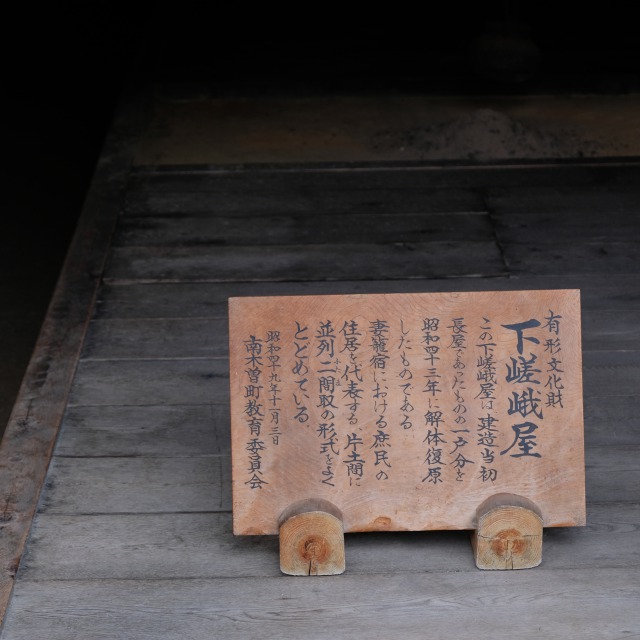 有形文化財
下嵯峨屋
この下嵯峨屋は、建造当初
長屋であったものの一戸分を
昭和四十三年に解体復原
したものである。
妻籠宿における庶民の
住居を代表する、片土間に
並列二間取の形式をよく
とどめている。
昭和四十九年十二月三日
南木曽町教育委員会